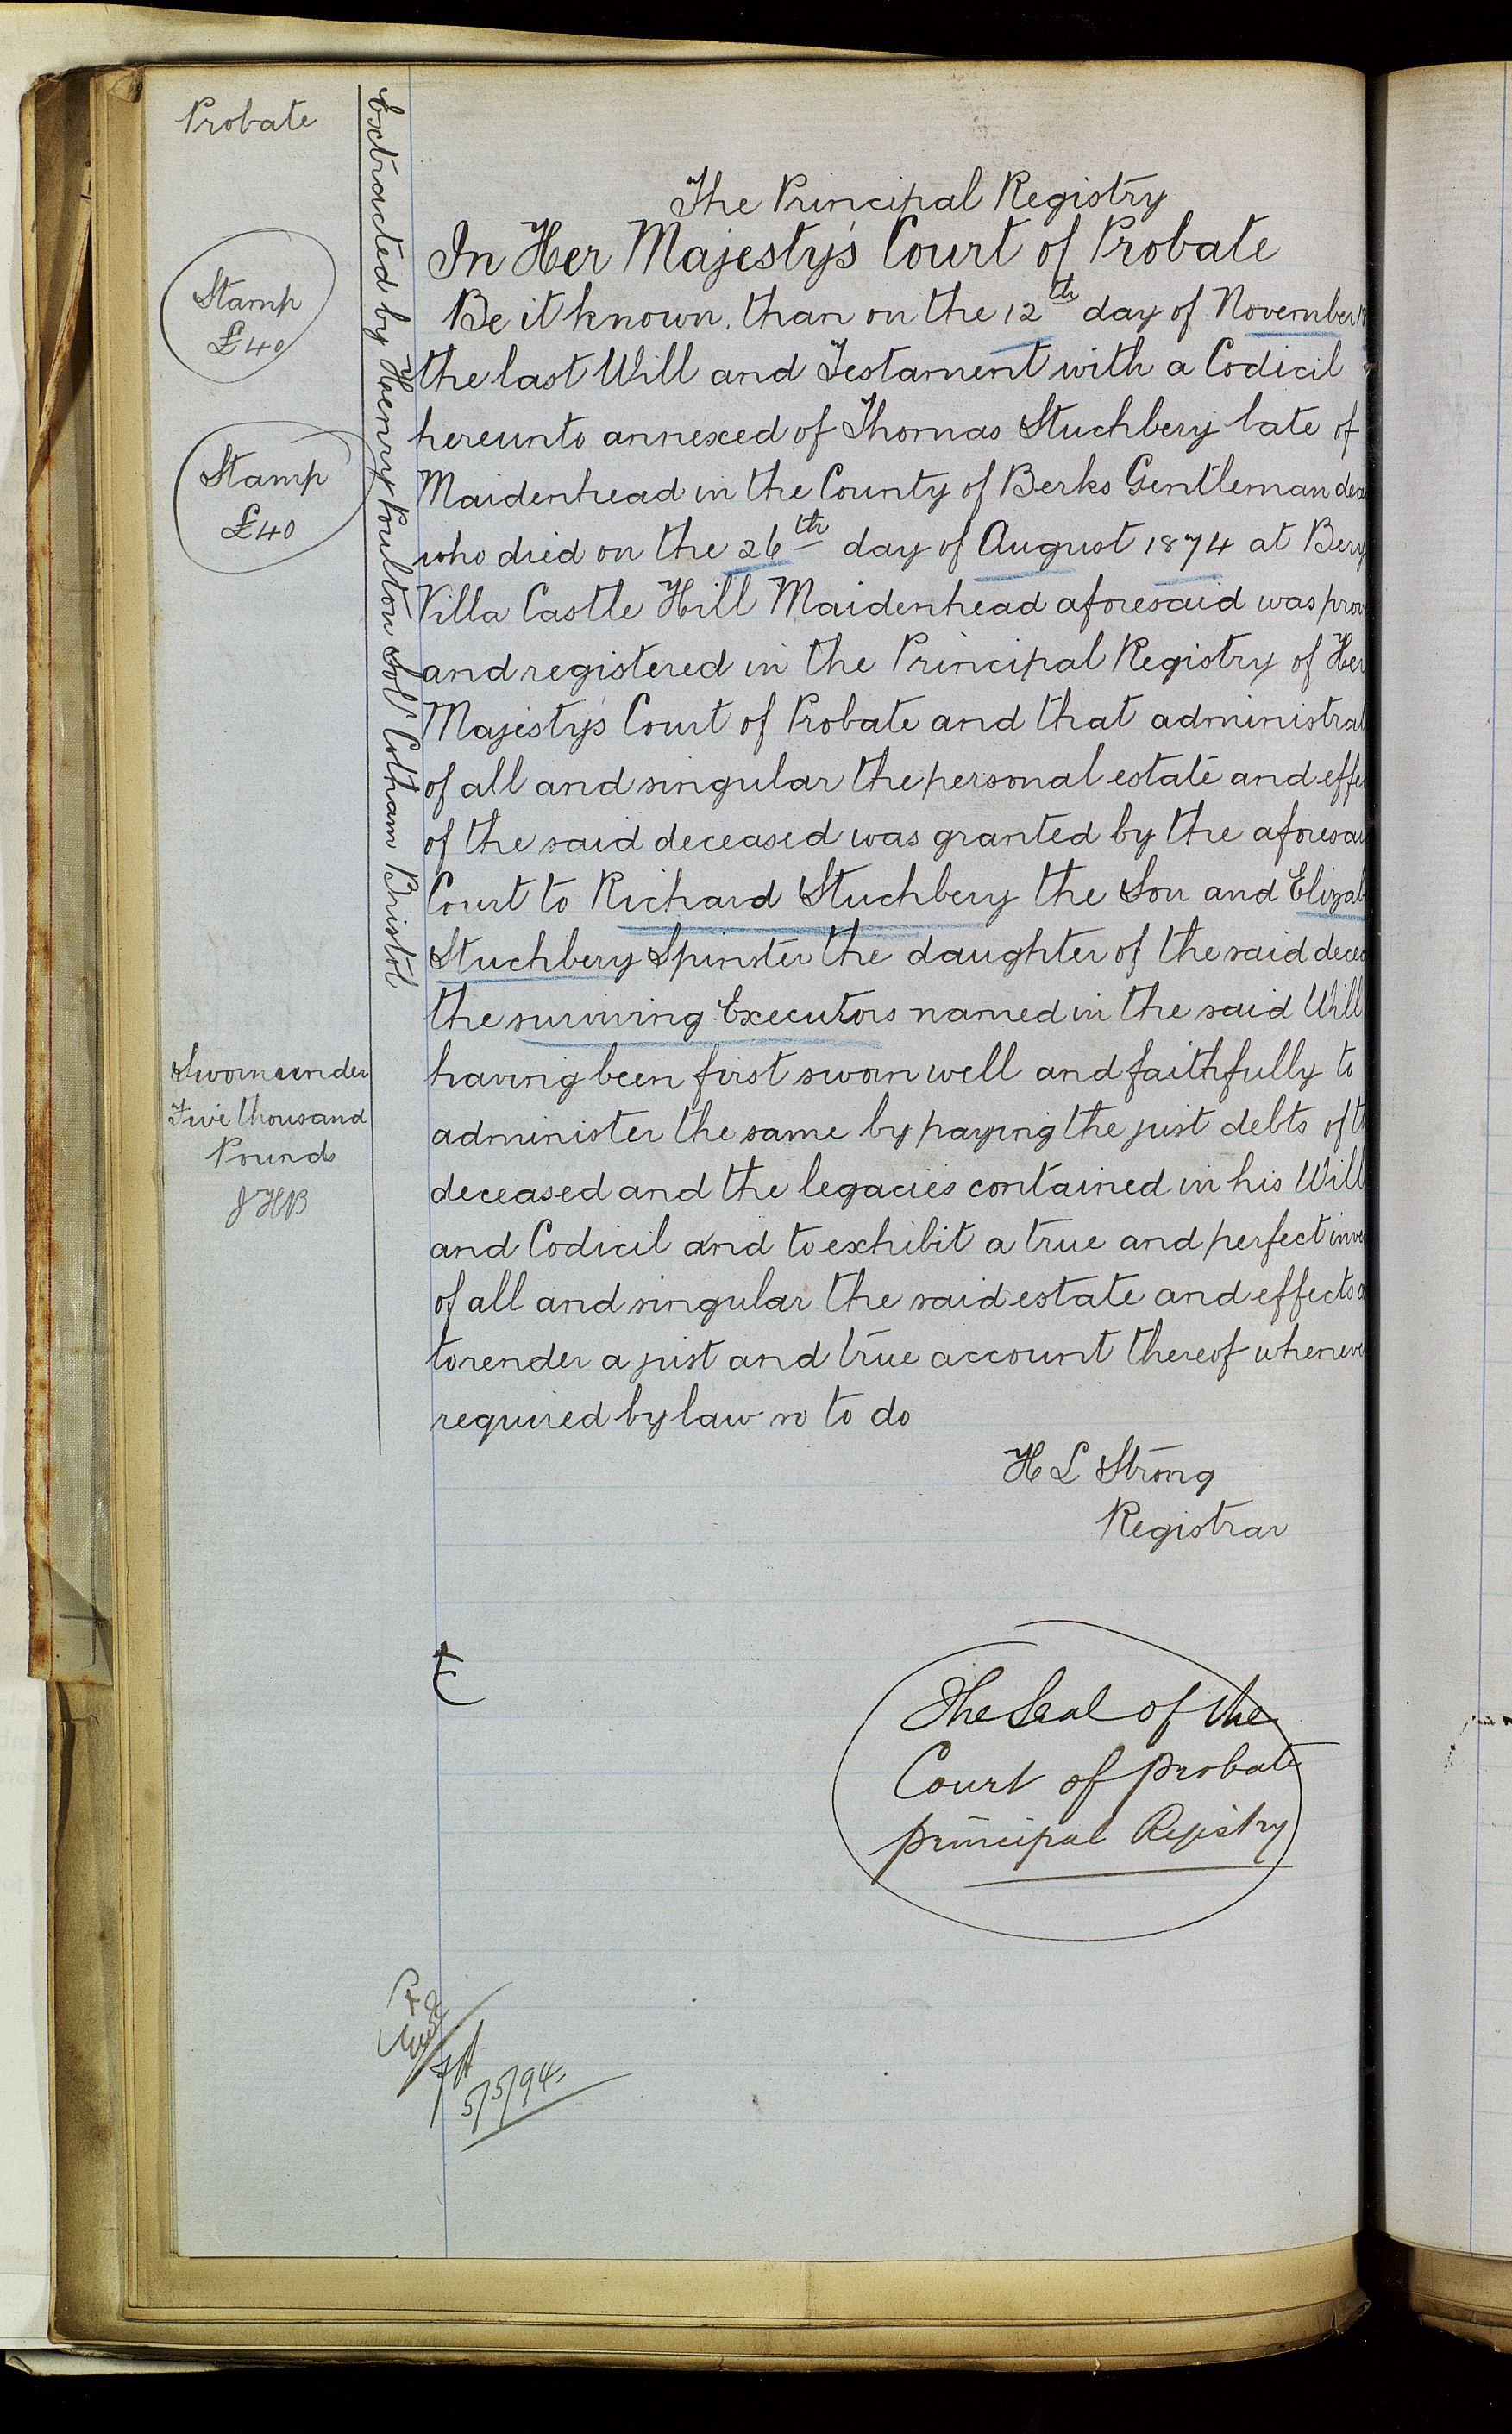 Probate
Extracted by Henry Poulton Solr Cotham Bristol
Stamp
£40
Stamp
£40
Sworn under
Five thousand
Pounds
JHB
The Principal Registry
In Her Majesty's Court of Probate
Be it known. than on the 12th day of November
the last Will and Testament with a Codicil
hereunto annexed of Thomas Stuchbery late of
Maidenhead in the County of Berks Gentleman dea
who died on the 26th day of August 1874 at Bery
Villa Castle Hill Maidenhead aforesaid was prov
and registered in the Principal Registry of Her
Majesty's Court of Probate and that administrat
of all and singular the personal estate and effe
of the said deceased was granted by the aforesai
Court to Richard Stuchbery the Son and Elizab
Stuchbery Spinster the daughter of the said decea
the surviving Executors named in the said Will
having been first sworn well and faithfully to
administer the same by paying the just debts of th
deceased and the legacies contained in his Will
and Codicil and to exhibit a true and perfect inve
of all and singular the said estate and effects a
to render a just and true account thereof wheneve
required by law so to do
H L Strong
Registrar
The Seal of the
Court of probate
principal Registry
5/5/94.